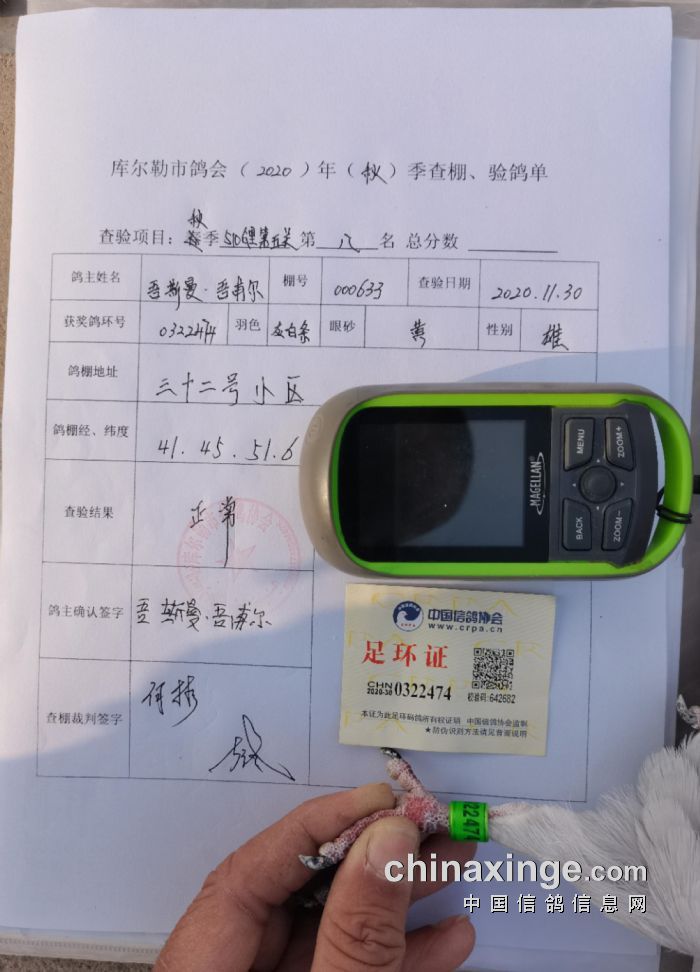 库尔勒市鸽会（2020）年（秋）季查棚、验鸽单
秋
查验项目：季510第五关第 八 名 总分数
鸽主姓名 吾斯曼·吾甫尔 棚号 000633 查验日期 2020.11.30
获奖鸽环号 0322474 羽色 灰白条 眼砂 黄 性别 雄
鸽棚地址 三十二号小区
鸽棚经、纬度 41.45.51.6
查验结果 正常
鸽主确认签字 吾斯曼·吾甫尔
查棚裁判签字
MAGELLAN
MENU
ZOOM+
BACK
ZOOM-
中国信鸽协会
www.crpa.cn
足环证
CHN
2020-30 0322474
校验码:642682
本证为此足环码鸽所有权证明 中国信鸽协会监制
★防伪识别方法请见背面说明
22474
chinaxinge.com
中国信鸽信息网